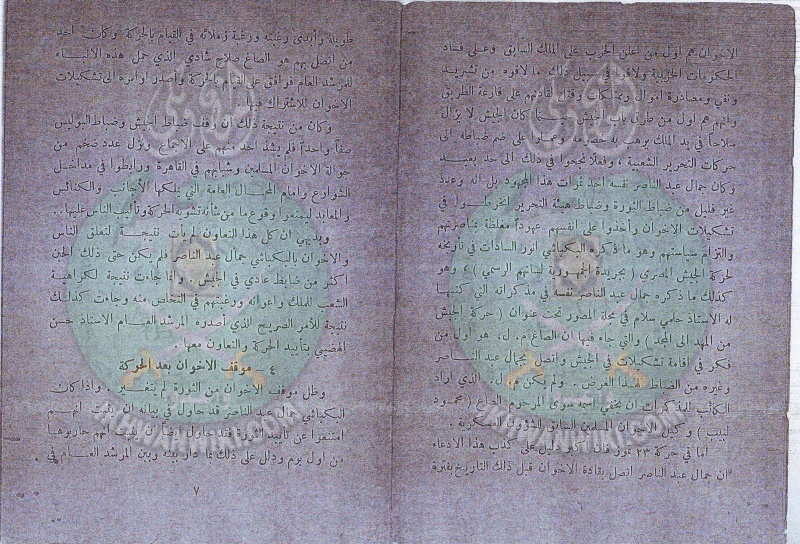 الاخوان هم اول من اعلن الحرب على الملك السابق وعلى فساد
الحكومات الحزبية ولاقوا في سبيل ذلك ما لاقوه من تشريد
ونفي ومصادرة اموال وممتلكات وقتل لقادتهم على قارعة الطريق
وانهم هم اول من طرق باب الجيش حينما كان الجيش لا يزال
سلاحاً في يد الملك يرهب به خصومه وعملوا على ضم ضباطه الى
حركات التحرير الشعبية وفعلا نجحوا في ذلك الى حد بعيد
وكان جمال عبد الناصر نفسه احد ثمرات هذا المجهود بل انه وعدد
غير قليل من ضباط الثورة وضباط هيئة التحرير انخرطوا في
تشكيلات الاخوان وأخذوا على انفسهم عهوداً مغلظة بمناصرتهم
والتزام سياستهم وهو ما ذكره البكباشي انور السادات في تاريخه
لحركة الجيش المصري ( بجريدة الجمهورية لسانهم الرسمي ) وهو
كذلك ما ذكره جمال عبد الناصر نفسه في مذكراته التي كتبها
له الاستاذ حلمي سلام في مجلة المصور تحت عنوان ( حركة الجيش
من المهد الى المجد ) والتي جاء فيها ان الصاغ م . ل . هو اول من
فكر في اقامة تشكيلات في الجيش واتصل بجمال عبد الناصر
وغيره من الضباط لهذا الغرض . ولم يكن م . ل . الذي اراد
الكاتب للمذكرات ان يخفي اسمه سوى المرحوم الصاغ ( محمود
لبيب ) وكيل الاخوان المسلمين السابق للشؤون العسكرية .
اما في حركة ٢٣ تموز فان ادل دليل على كذب هذا الادعاء
ان جمال عبد الناصر اتصل بقادة الاخوان قبل ذلك التاريخ بفترة
٦
طويلة وأبدى رغبته ورغبة زملائه في القيام بالحركة وكان احد
من اتصل بهم هو الصاغ صلاح شادي الذي حمل هذه الانباء
للمرشد العام فوافق على القيام بالحركة وأصدر اوامره الى تشكيلات
الاخوان للاشتراك فيها .
وكان من نتيجة ذلك ان وقف ضباط الجيش وضباط البوليس
صفاً واحداً فلم يشذ احد منهم على الاجماع ونزل عدد ضخم من
جوالة الاخوان المسلمين وشبابهم في القاهرة ورابطوا في مداخل
الشوارع وامام المحال العامة التي يملكها الأجانب والكنائس
والمعابد ليمنعوا وقوع ما من شأنه تشويه الحركة وتأليب الناس عليها ..
وبديهي ان كل هذا التعاون لم يأت نتيجة لتعلق الناس
والاخوان بالبكباشي جمال عبد الناصر فلم يكن حتى ذلك الحين
اكثر من ضابط عادي في الجيش . وانما جاءت نتيجة لكراهية
الشعب للملك واعوانه ورغبتهم في التخلص منه وجاءت كذلك
نتيجة للأمر الصريح الذي أصدره المرشد العام الاستاذ حسن
الهضيبي بتأييد الحركة والتعاون معها .
٤ - موقف الاخوان بعد الحركة
وظل موقف الاخوان من الثورة لم يتغير . واذا كان
البكباشي جمال عبد الناصر قد حاول في بيانه ان يثبت انهم
امتنعوا عن تأييد الثورة فقد حاول ايضاً ان يثبت انهم حاربوها
من اول يوم ودلل على ذلك بما دار بينه وبين المرشد العام في
٧
IKHWANWIKI.COM